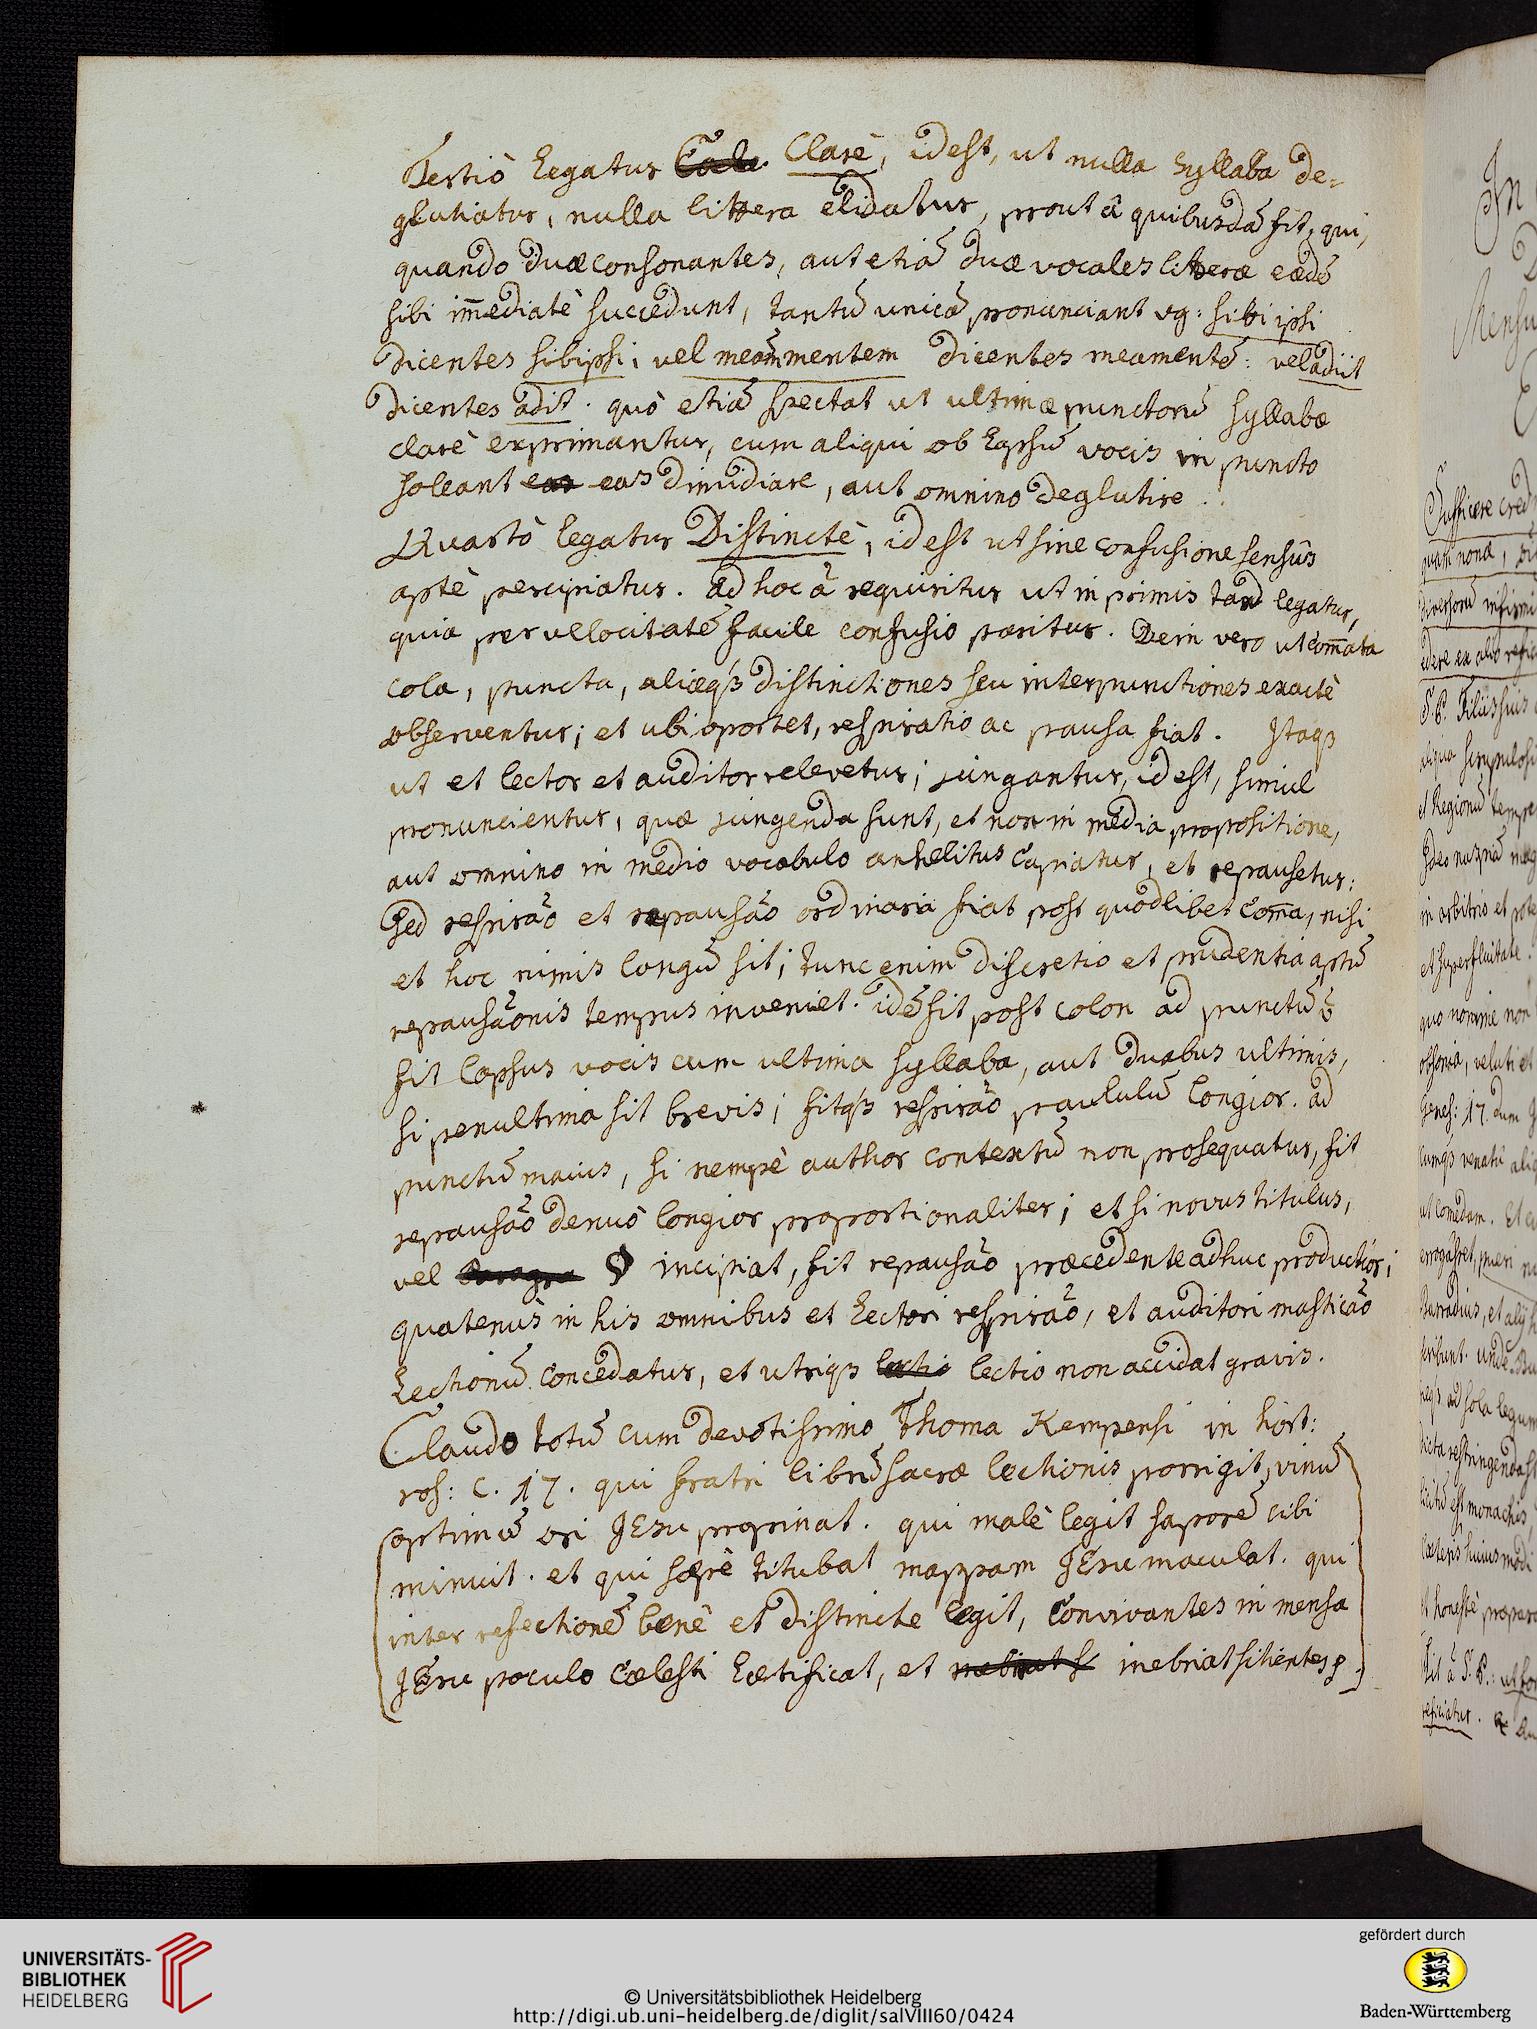 Tertiò legatur Clarè, idest, ut nulla syllaba de-
glutiatur, nulla littera elidatur, prout à quibusdā fit, qui,
quando duæ consonantes, aut etiā duæ vocales litteræ eædē
sibi im̄ediatè succedunt, tantū unicā pronunciant vg: sibi ipsi
dicentes sibipsi; vel meam̄mentem dicentes meamentē: vel adiit
dicentes adit. quò etiā spectat ut ultimæ punctorū syllabæ
clarè exprimantur, cum aliqui ob lapsū vocis in puncto
soleant eas eas dimidiare, aut omnino deglutire.
Quartò legatur Distinctè, idest ut sine confusione sensûs
aptè percipiatur. Ad hoc ā requiritur ut in primis tard legatur,
quia per vellocitatē facile confusio paritur. Dein vero ut com̄ata
cola, puncta, aliæqꝫ distinctiones seu interpunctiones exactè
observentur; et ubi oportet, respiratio ac pausa fiat. Itaqꝫ
ut et lector et auditor relevetur; jungantur, idest, simul
pronuncientur, quæ jungenda sunt, et non in media propositione,
aut omnino in medio vocabulo anhelitus capiatur, et repausetur:
sed respirāo et repausāo ordinaria fiat post quodlibet com̄a, nisi
et hoc nimis longū sit; tunc enim discretio et prudentia aptū
repausāonis tempus inveniet. idē fit post colon ad punctū ṽ
fit lapsus vocis cum ultima syllaba, aut duabus ultimis,
si penultima sit brevis; fitqꝫ respirāo paululū longior. ad
punctū maius, si nempè author contextū non prosequatur, fit
repausāo denuò longior proportionaliter; et si novus titulus,
vel § incipiat, fit repausāo præcedente adhuc productior;
quatenùs in his omnibus et lectori respirāo, et auditori masticāo
Lectionū concedatur, et utriqꝫ lectio lectio non accidat gravis.
Claudo totū cum devotissimo Thoma Kempensi in hort:
ros: c. 17. qui fratri librū sacræ lectionis porrigit, vinū
optimū ori JEsu propinat. qui malè legit saporē cibi
minuit. et qui sæpè titubat mappam JEsu maculat. qui
inter refectionē benè et distincte legit, convivantes in mensa
JEsu poculo cælesti lætificat, et inebriat sitientes
In
Mensu
Sufficere cred
quam nonæ,
diversorū infirmi
edere ex alio refic
et Regionū tempe
in arbitrio et pote
et superfluitate
quo nomine non
obsonia, veluti et
Genes: 17. dum
cumqꝫ venatu aliq
ut comedam. Et
et honestè
reficiatur.
UNIVERSITÄTS-
BIBLIOTHEK
HEIDELBERG
© Universitätsbibliothek Heidelberg
http://digi.ub.uni-heidelberg.de/diglit/salVIII60/0424
gefördert durch
Baden-Württemberg